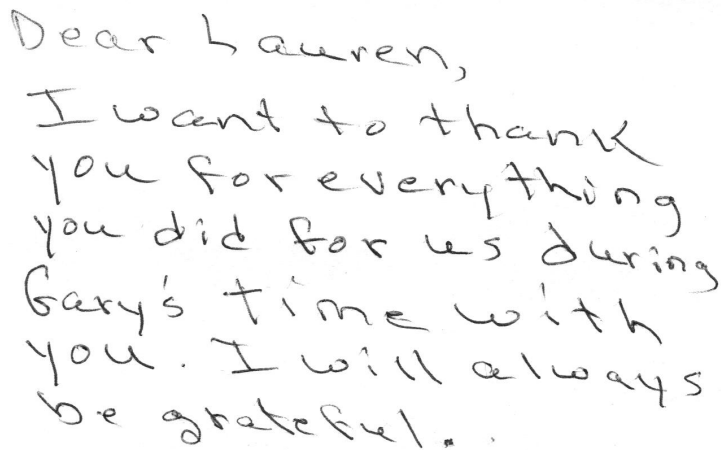 Dear Lauren,
I want to thank
you for everything
you did for us during
Gary's time with
you. I will always
be grateful..